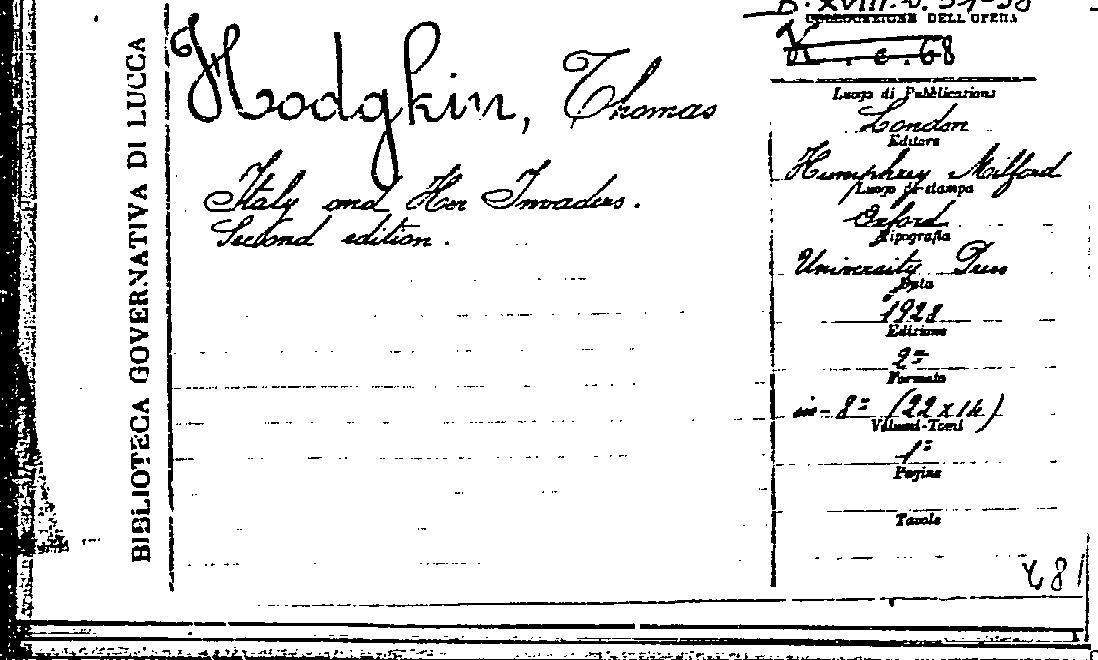 BIBLIOTECA GOVERNATIVA DI LUCCA
Hodgkin, Thomas
Italy and Her Invaders.
Second edition.
COLLOCAZIONE DELL'OPERA
. c . 68
Luogo di Pubblicazione
London
Editore
Humphrey Milford
Luogo di stampa
Oxford
Tipografia
University Press
Data
1928
Edizione
2ª
Formato
in-8º (22x14)
Volumi-Tomi
1º
Pagine
Tavole